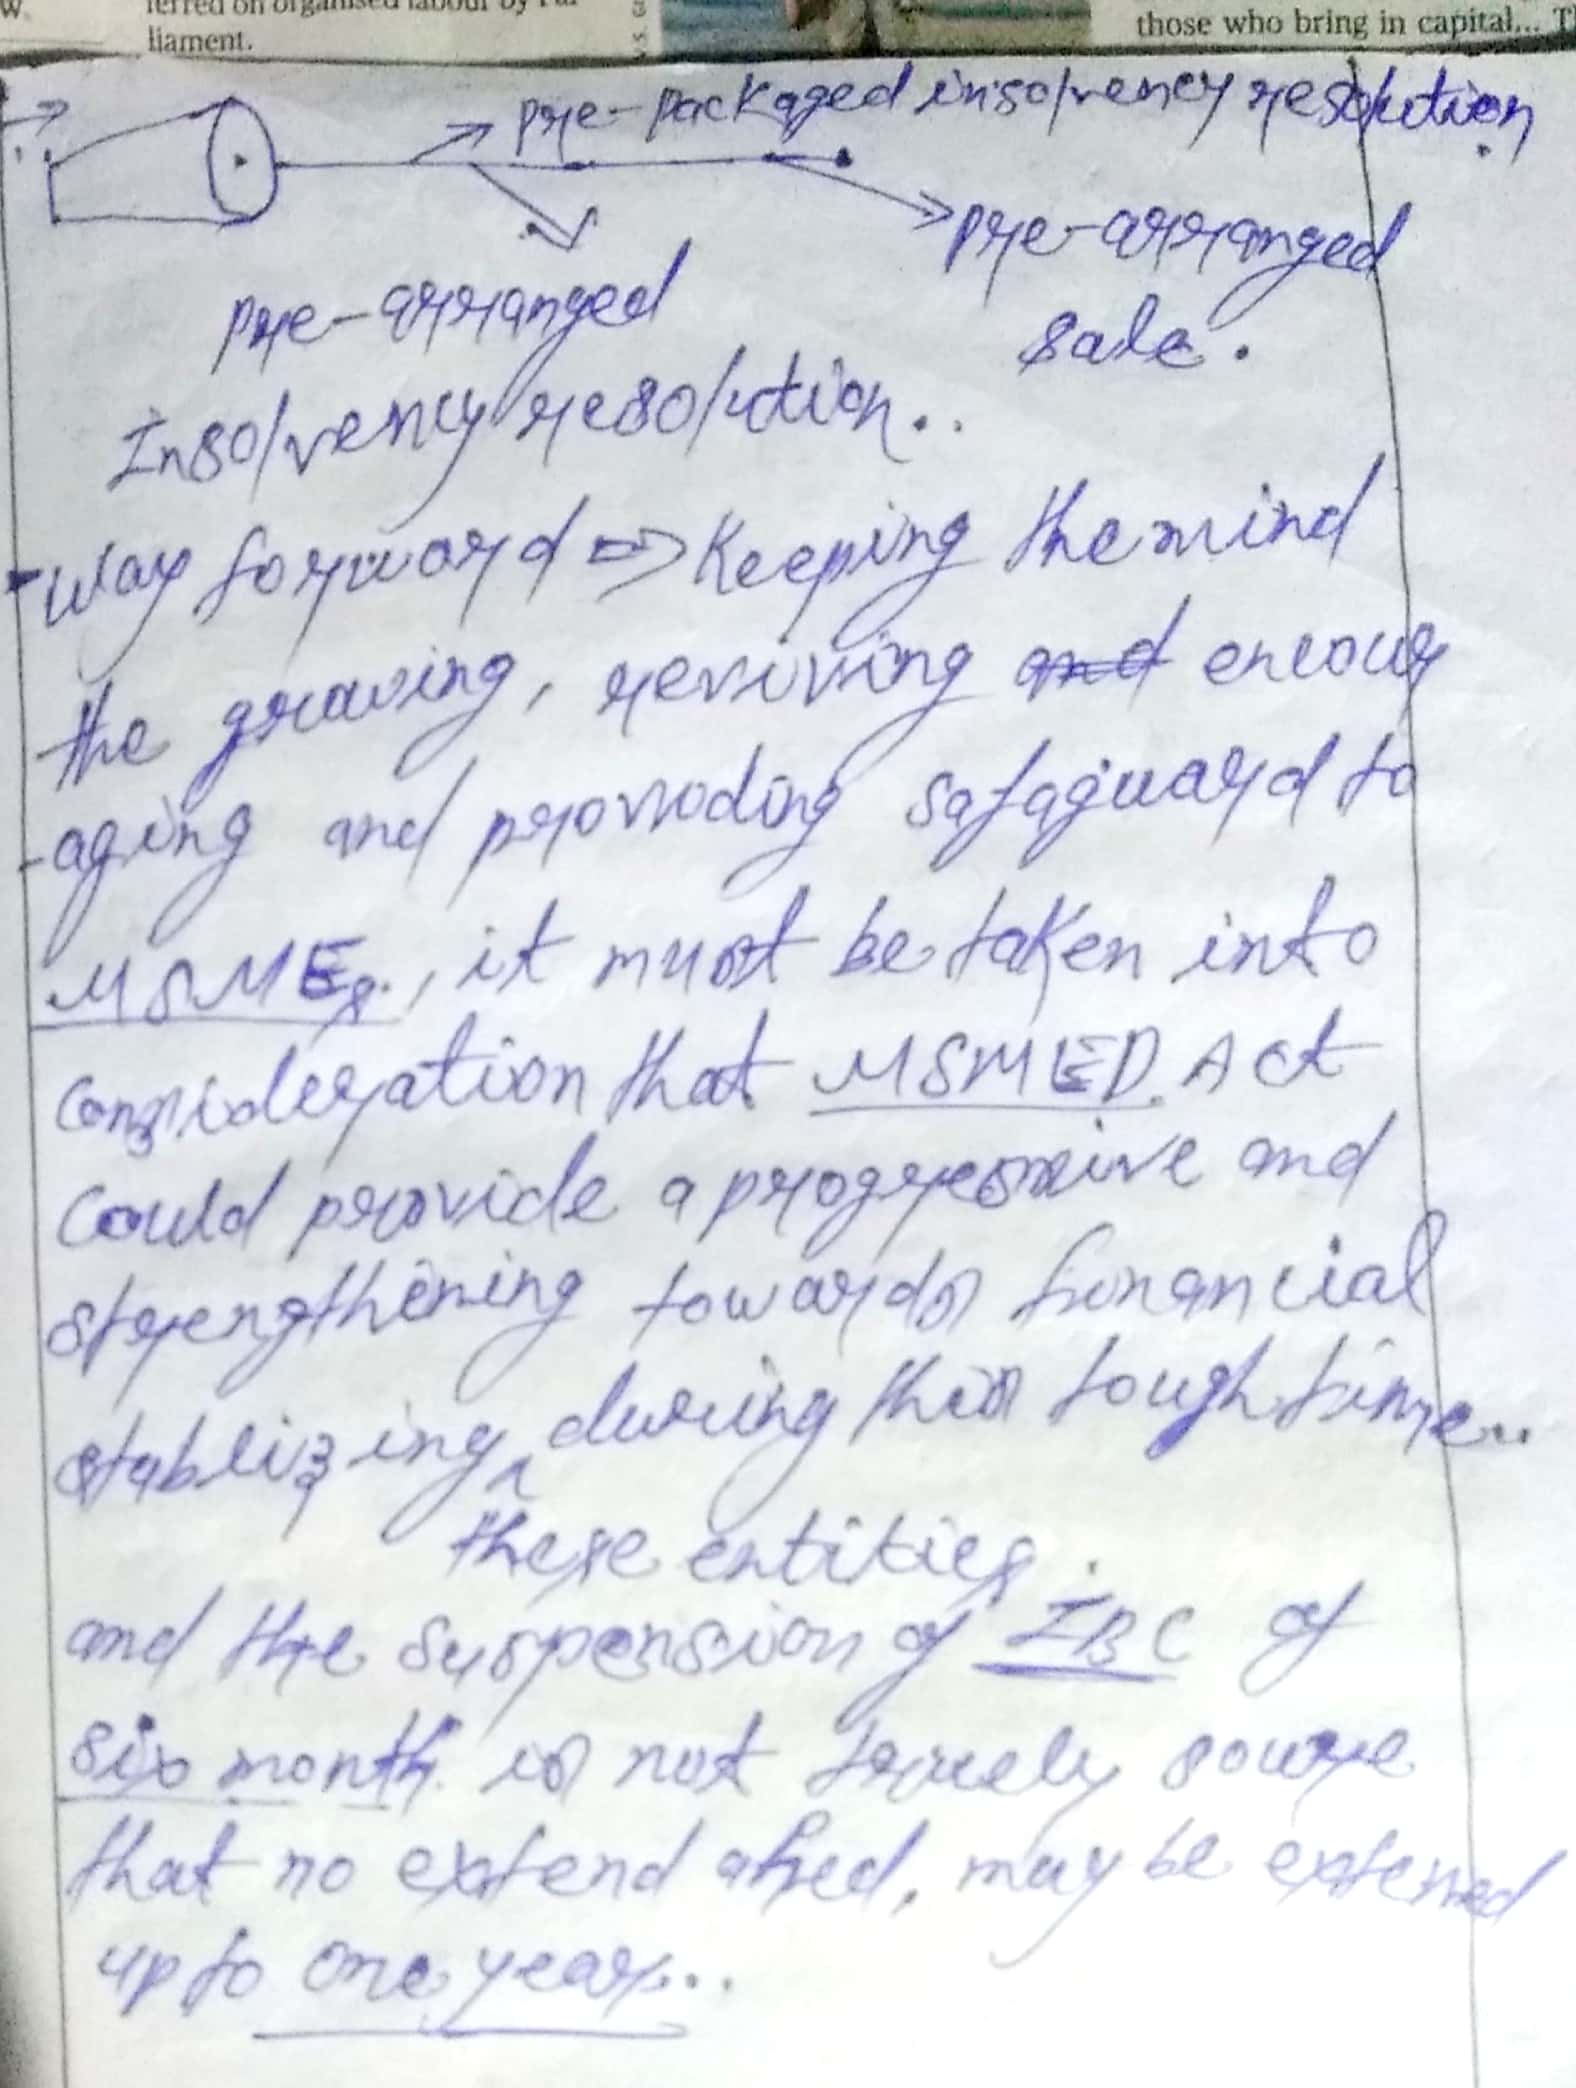 w.
ferred on organised labour by Par
liament.
those who bring in capital... T
pre-packaged insolvency resolution.
pre-arranged
sale.
pre-arranged
Insolvency resolution..
Way forward ⇒ Keeping the mind
the growing, reviving and encour
-aging and providing safaguard to
MSMEs., it must be taken into
consideration that MSMED. Act
Could provide a progressive and
strengthening towards financial
stablizing, during this tough time..
these entities.
and the suspension of IBC of
six month. is not truely soure
that no extend ahed, may be extened
up to one year...